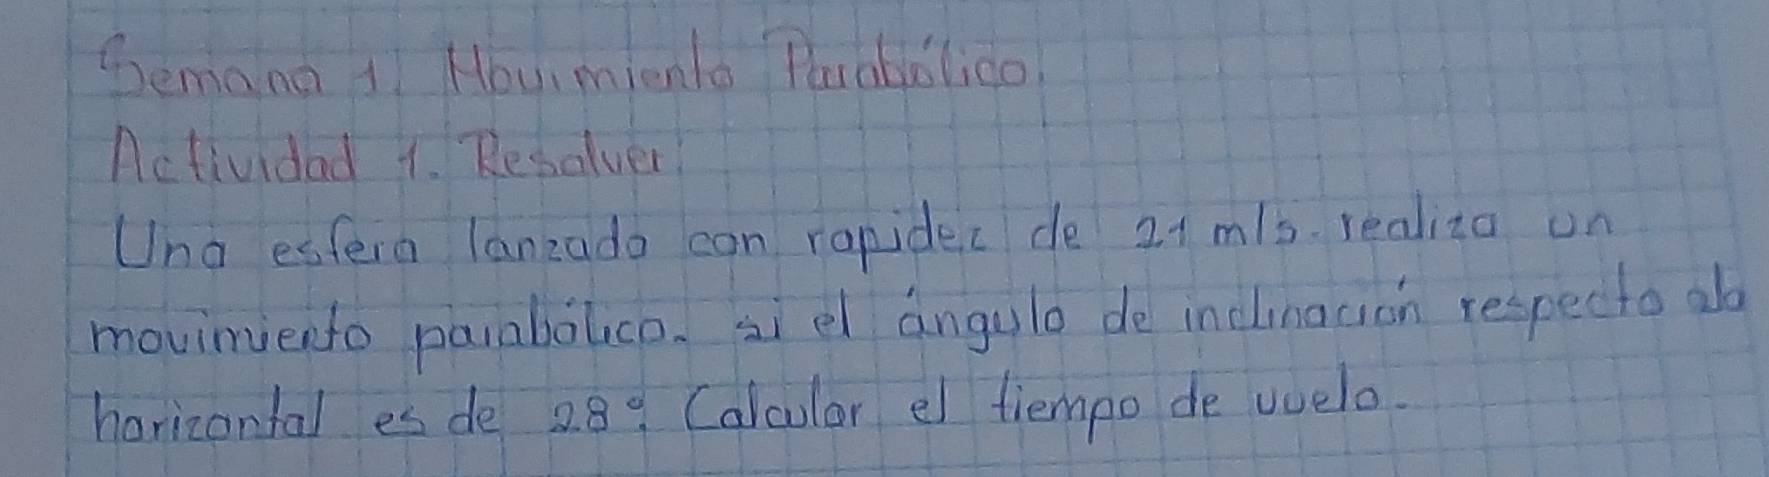 Semana 1. Movimiento Parabólico
Actividad 1. Resolver
Una esfera lanzada con rapidez de 21 m/s. realiza un
movimiento parabólico. si el ángulo de inclinación respecto ala
horizontal es de 28°. Calcular el tiempo de vuelo.